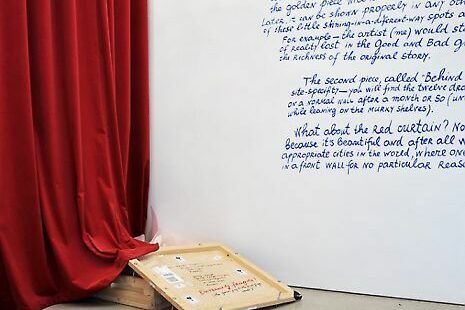 the golden piece
Later, it can be shown properly in any oth
of these little shining-in-a-different-way spots a
For example—the artist (me) would st
of reality lost in the Good and Bad g
the richness of the original story.
The second piece, called "Behind
site-specifity—you will find the twelve dra
on a normal wall after a month or so (un
while leaning on the murky shelves).
What about the red curtain? No
Because it's beautiful and after all w
appropriate cities in the world, where one
in a front wall for no particular reaso
Extremely fragile!